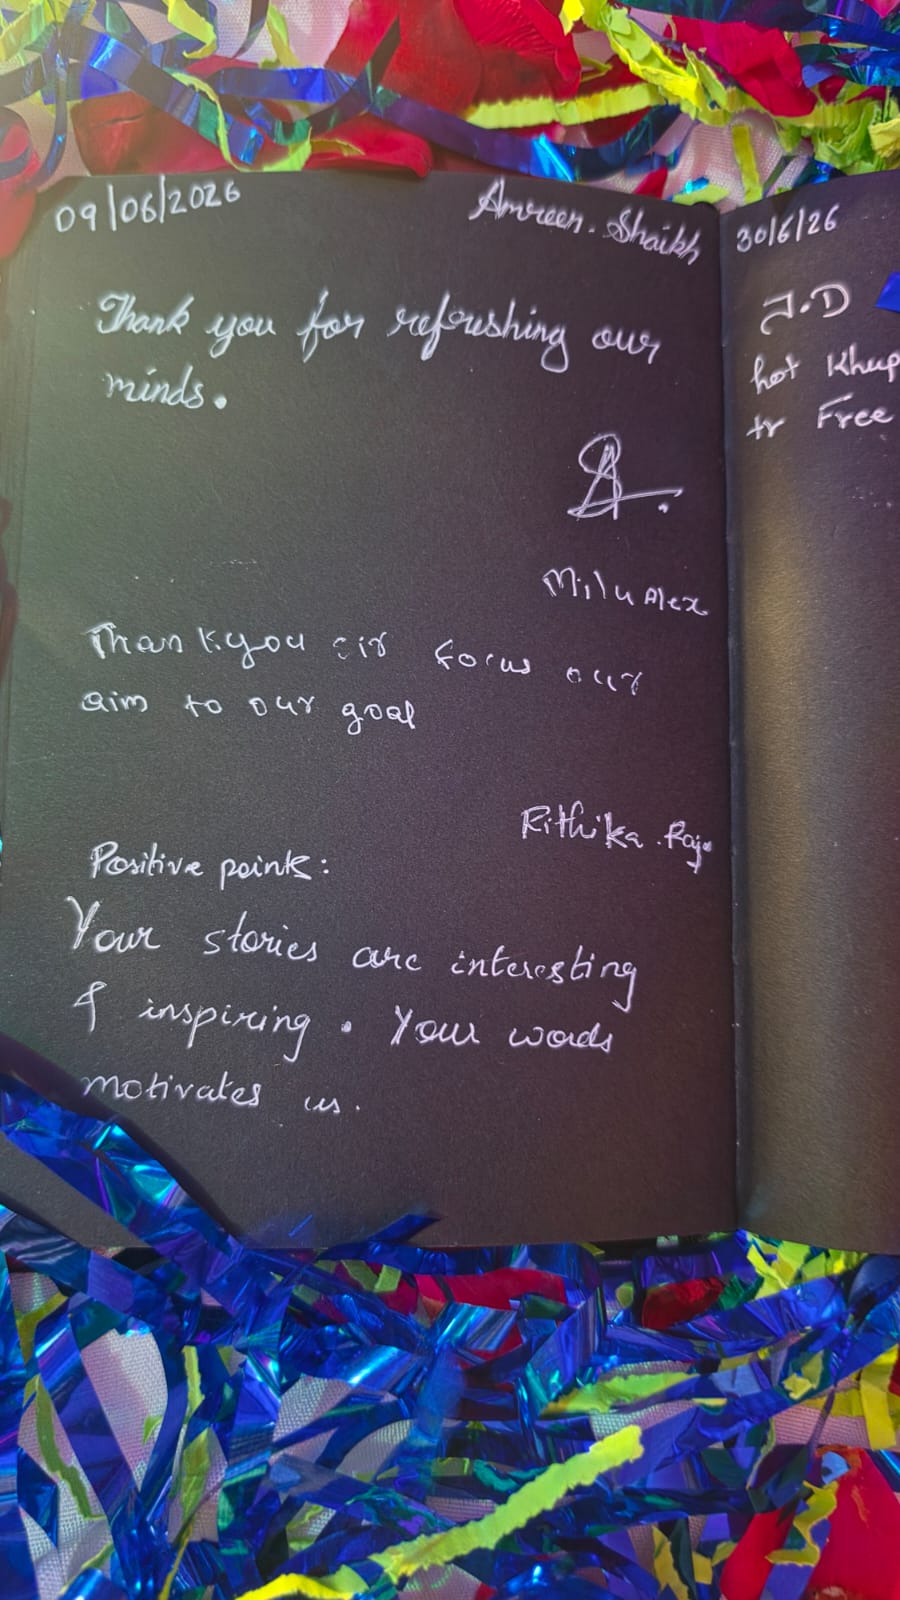 09/06/2026
Amreen. Shaikh
Thank you for refreshing our
minds.
Milu Alex
Thank you sir focus our
aim to our goal
Rithika. Raje
Positive points:
Your stories are interesting
& inspiring. Your words
motivates us.
30/6/26
J.D
hot Khup
tr Free